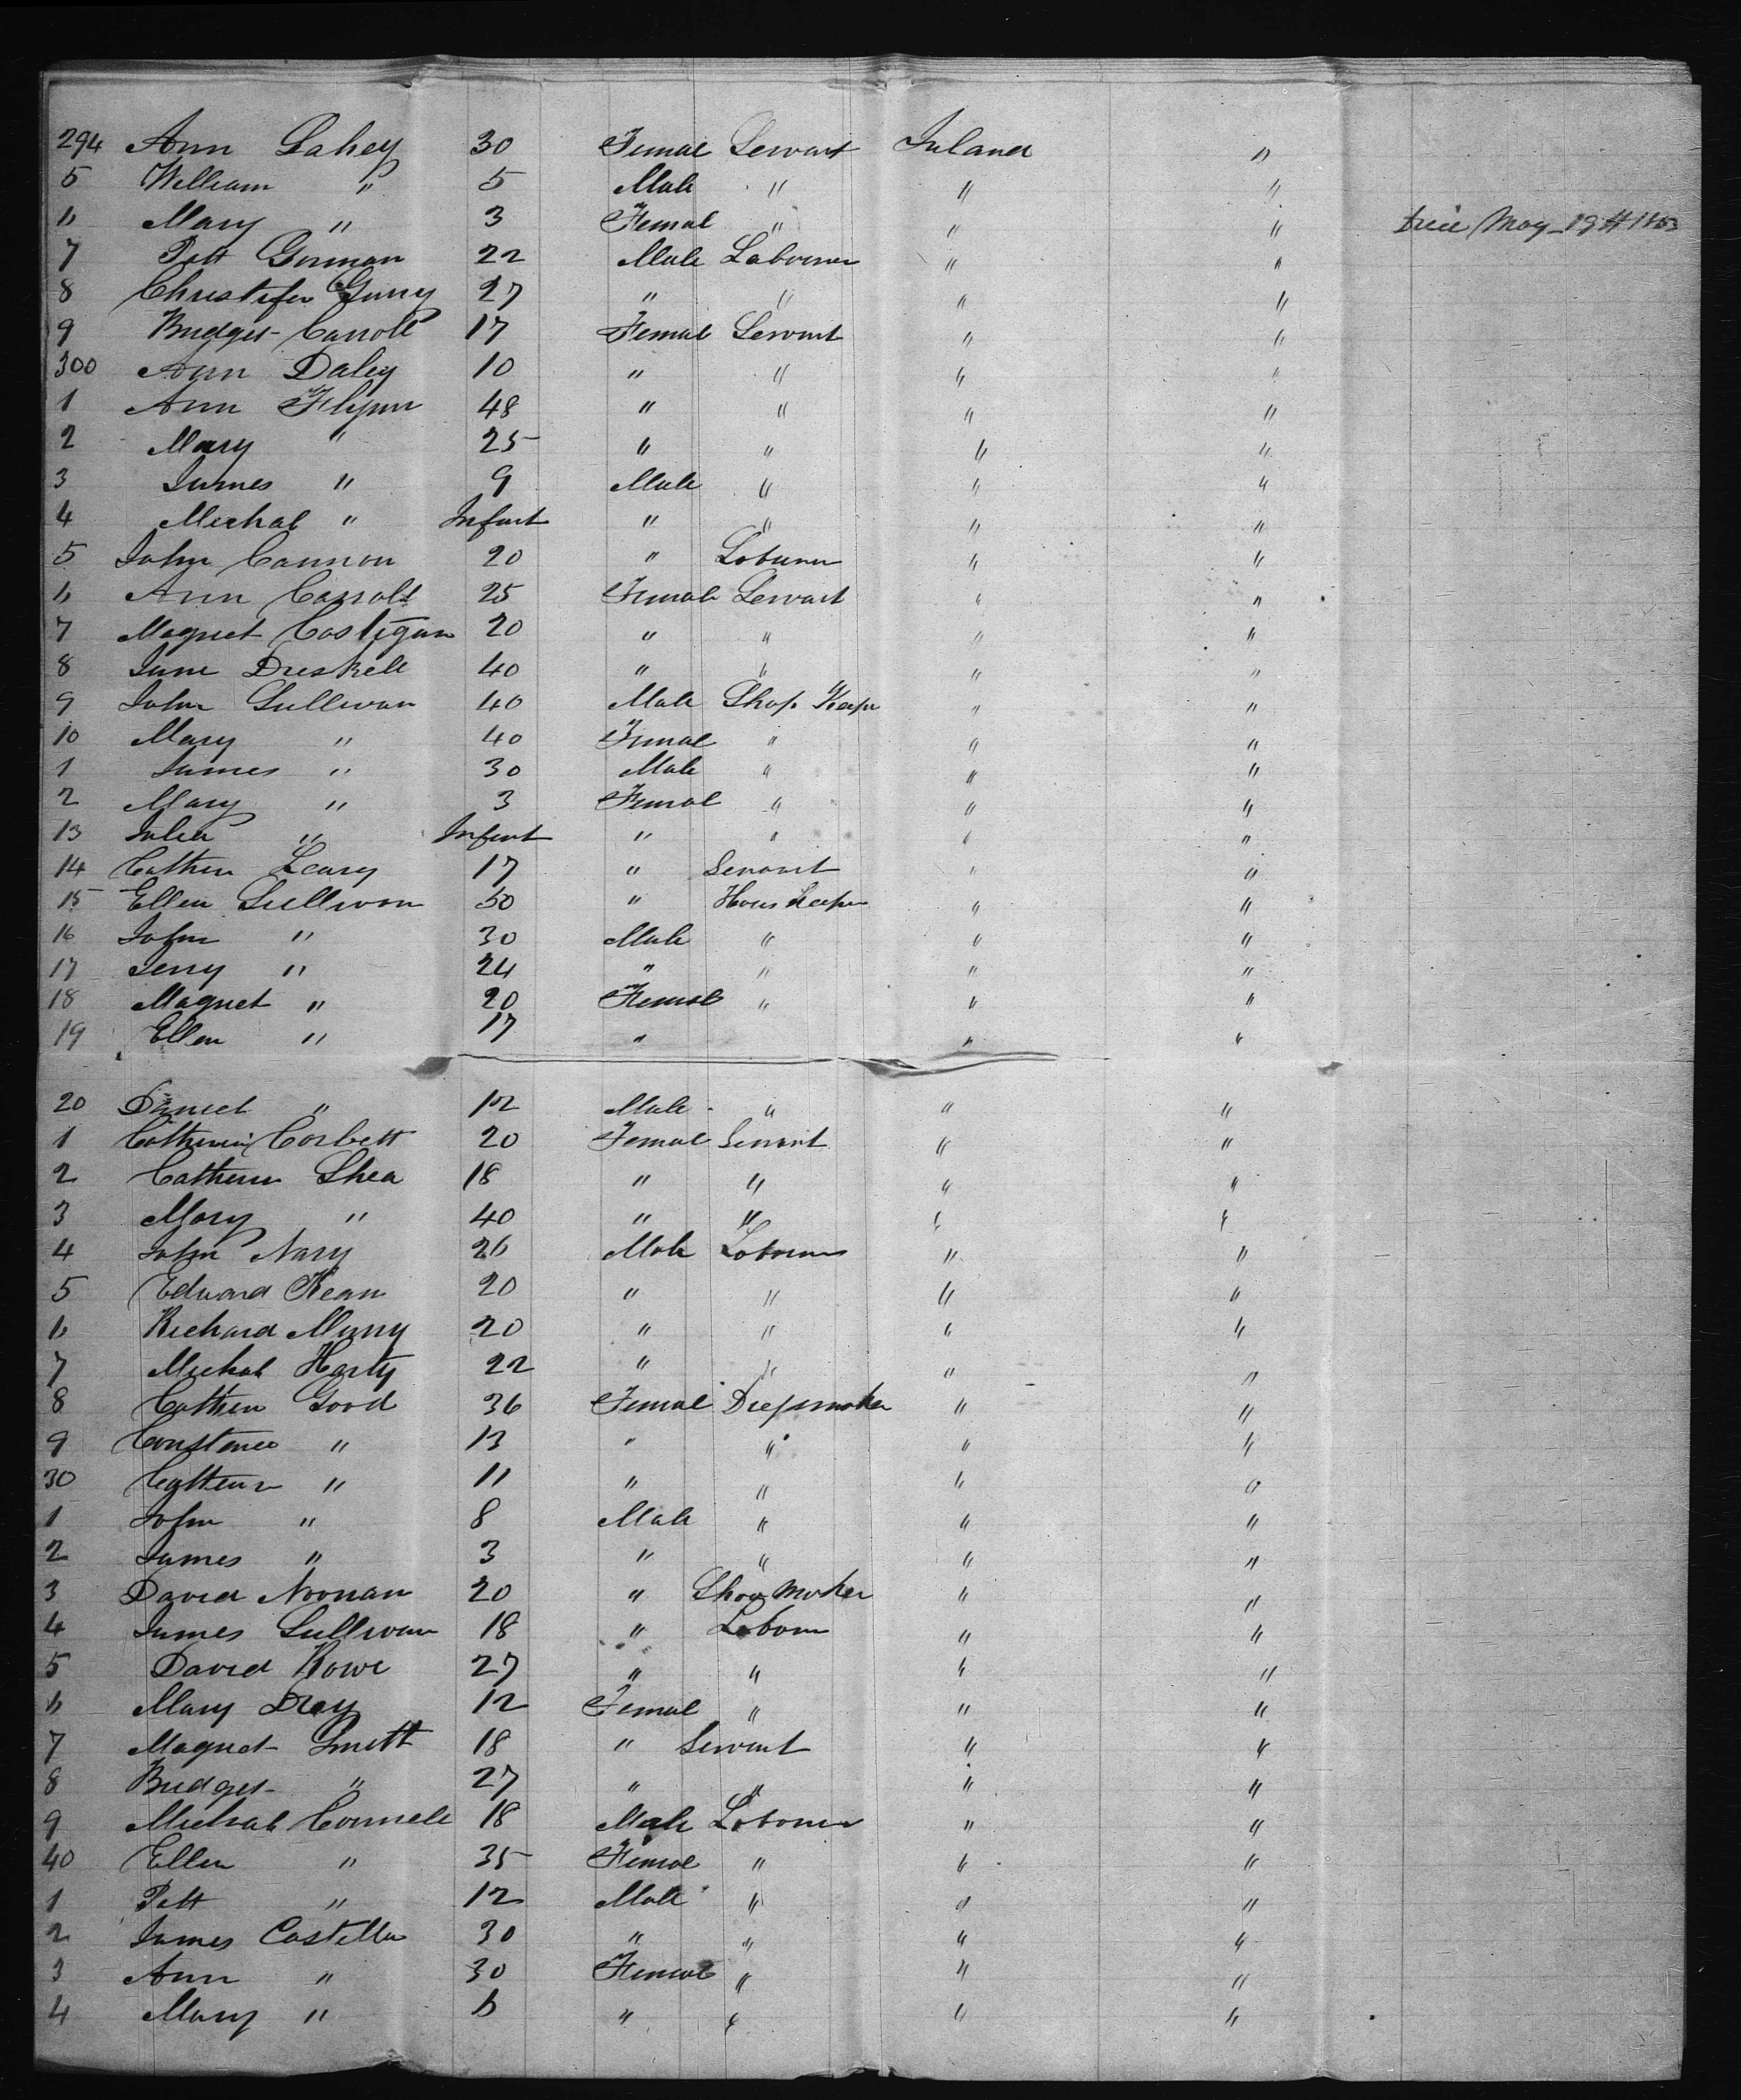 294 Ann Lahey 30 Femal Servant Ireland "
5 William " 5 Male " " "
6 Mary " 3 Femal " " " died May 19th
7 Patt Gorman 22 Male Labourer " "
8 Christifer Gurry 27 " " " "
9 Bridget Carroll 17 Femal Servant " "
300 Ann Daley 10 " " " "
1 Ann Flynn 48 " " " "
2 Mary " 25 " " " "
3 James " 9 Male " " "
4 Michal " Infant " " " "
5 John Cannon 20 " Labourer " "
6 Ann Carroll 25 Female Servant " "
7 Magret Costigan 20 " " " "
8 Jane Dreskell 40 " " " "
9 John Sullivan 40 Male Shop Keeper " "
10 Mary " 40 Femal " " "
1 James " 30 Male " " "
2 Mary " 3 Femal " " "
13 Julia " Infant " " " "
14 Cathern Leary 17 " Servant " "
15 Ellen Sullivan 50 " Hous Keeper " "
16 John " 30 Male " " "
17 Jerry " 24 " " " "
18 Magret " 20 Femal " " "
19 Ellen " 17 " " "
20 Daniel " 12 Male " " "
1 Catherin Corbett 20 Femal Servant " "
2 Cathern Shea 18 " " " "
3 Mary " 40 " " " "
4 John Nary 26 Male Labourer " "
5 Edward Kean 20 " " " "
6 Richard Murry 20 " " " "
7 Michal Harty 22 " " " "
8 Cathern Good 36 Femal Dressmaker " "
9 Constence " 13 " " " "
30 Cathern " 11 " " " "
1 John " 8 Male " " "
2 James " 3 " " " "
3 David Noonan 20 " Shoe Maker " "
4 James Sullivan 18 " Labour " "
5 David Rowe 27 " " " "
6 Mary Dray 12 Femal " " "
7 Magret Smith 18 " Servant " "
8 Bridget " 27 " " " "
9 Michal Connell 18 Male Labourer " "
40 Ellen " 35 Femal " " "
1 Patt " 12 Male " " "
2 James Costello 30 " " " "
3 Ann " 30 Femal " " "
4 Mary " 6 " " " "